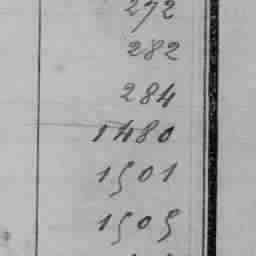 272
282
284
1480
1501
1505